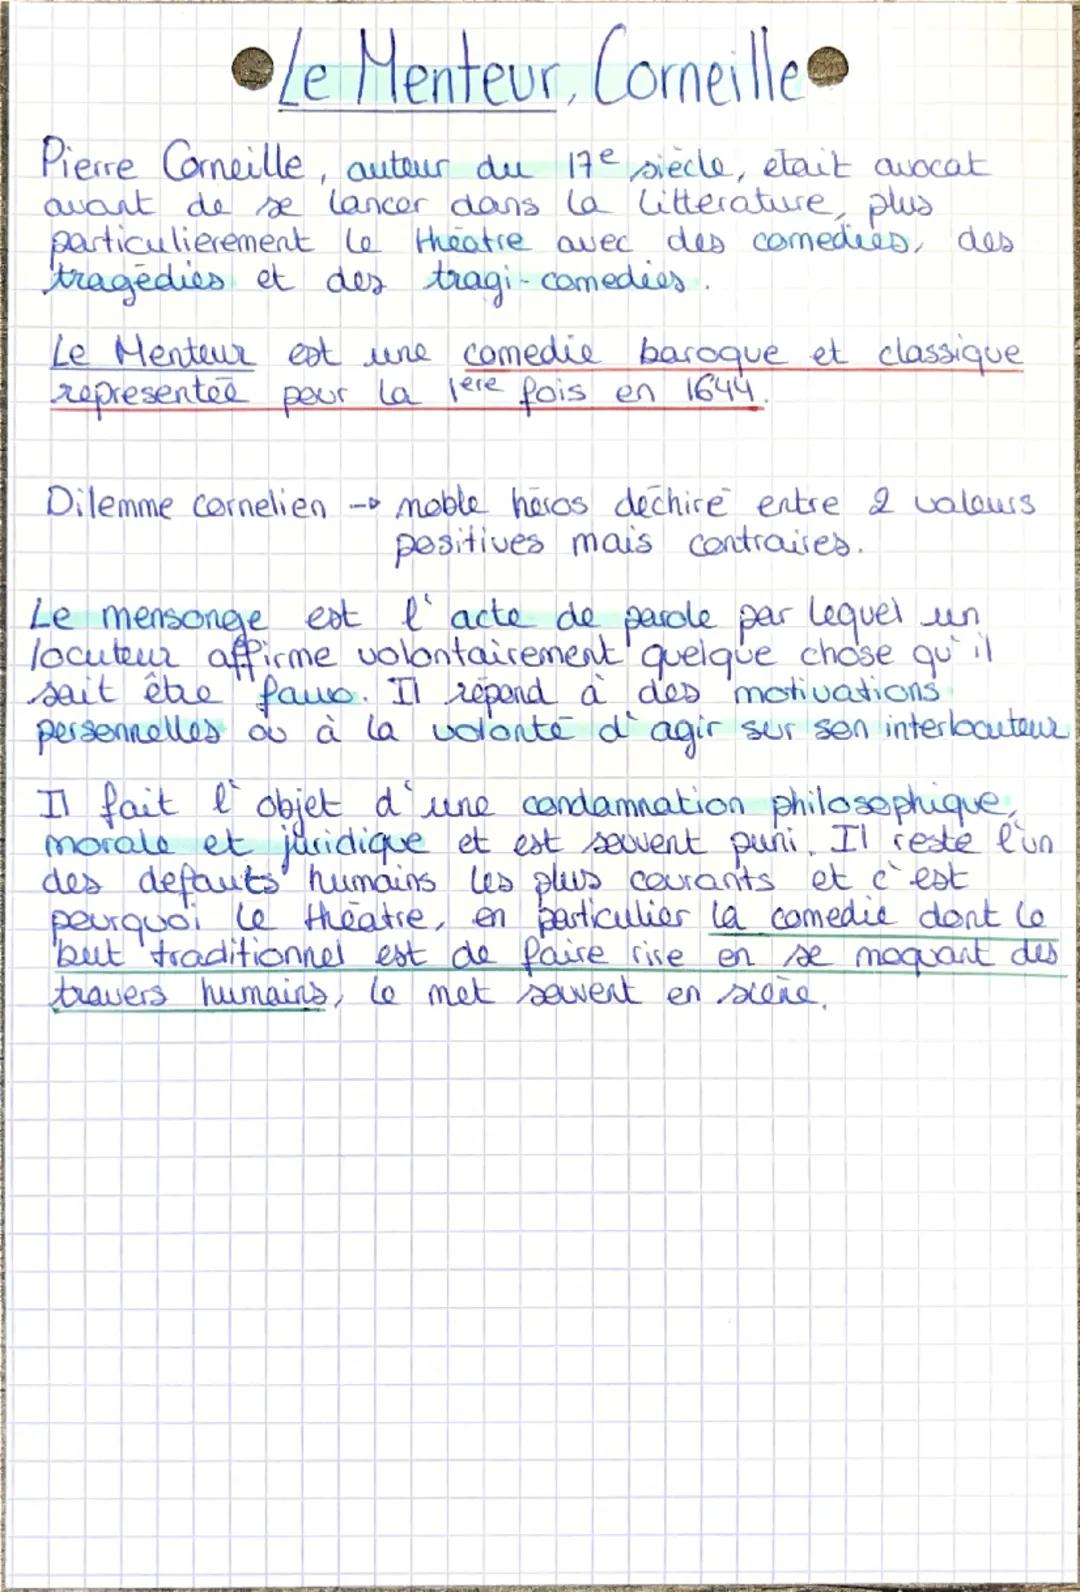 Le Menteur, Corneille
Pierre Corneille, auteur du 17e siècle, était avocat
avant de se lancer dans la littérature, plus
particulièrement le théâtre avec des comédies, des
tragédies et des tragi-comédies.
Le Menteur est une comédie baroque et classique
représentée pour la 1ère fois en 1644.
Dilemme cornélien → noble héros déchiré entre 2 valeurs
positives mais contraires.
Le mensonge est l'acte de parole par lequel un
locuteur affirme volontairement quelque chose qu'il
sait être faux. Il répond à des motivations
personnelles ou à la volonté d'agir sur son interlocuteur
Il fait l'objet d'une condamnation philosophique,
morale et juridique et est souvent puni. Il reste l'un
des défauts humains les plus courants et c'est
pourquoi le théâtre, en particulier la comédie dont le
but traditionnel est de faire rire en se moquant des
travers humains, le met souvent en scène.